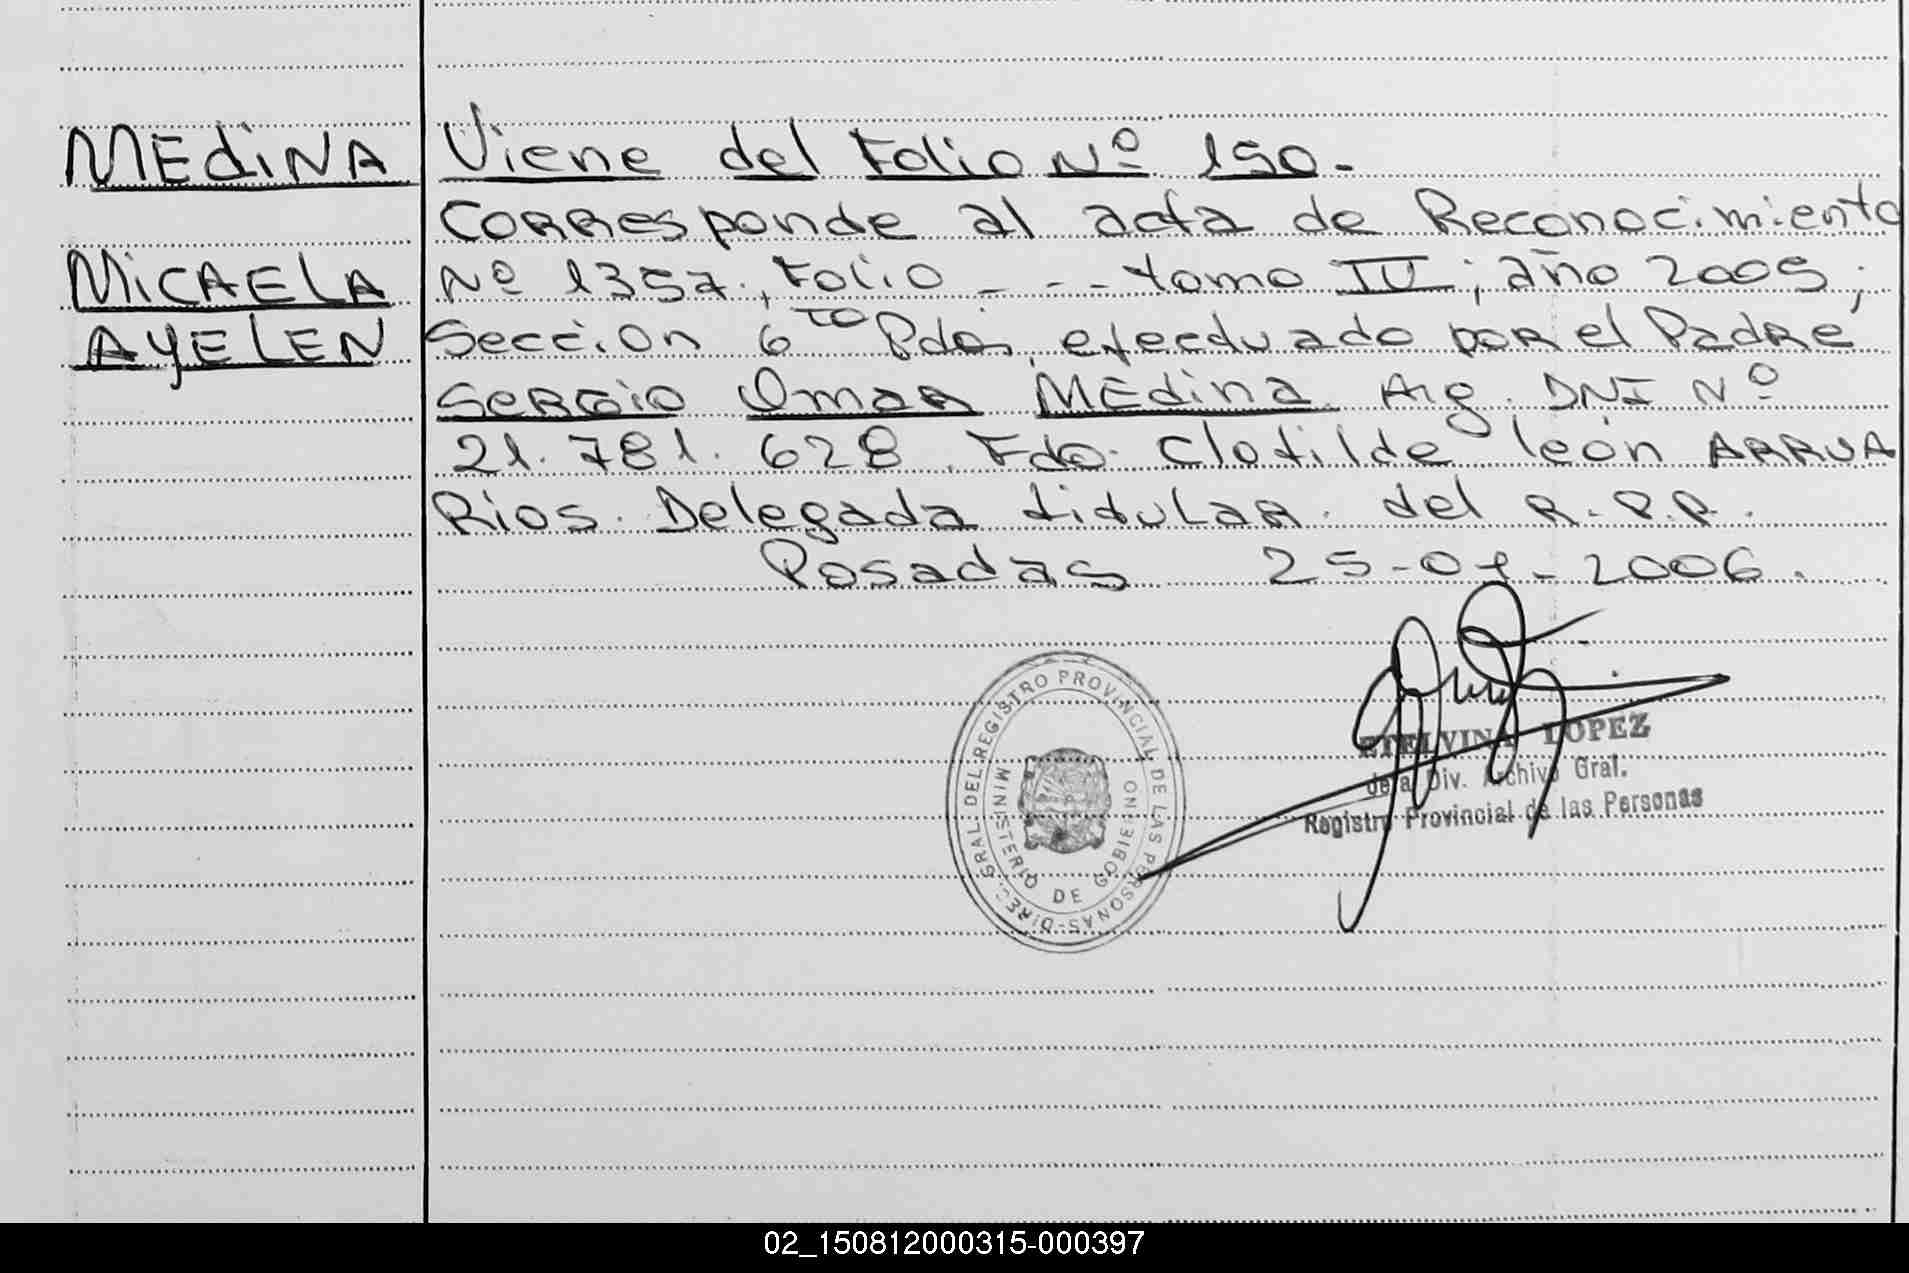 MEDINA
MICAELA
AYELEN
Viene del Folio Nº 150.-
Corresponde al acta de Reconocimiento
Nº 1357, Folio - - - tomo IV; año 2005;
Sección 6ta Pdas, efectuado por el Padre
Sergio Omar Medina. Arg. DNI Nº
21.781.628. Fdo. Clotilde león ARRUA
Rios. Delegada titular. del R.P.P.
Posadas 25-04-2006.
DIREC. GRAL. DEL REGISTRO PROVINCIAL DE LAS PERSONAS-
MINISTERIO DE GOBIERNO
ETELVINA LOPEZ
de la Div. Archivo Gral.
Registro Provincial de las Personas
02_150812000315-000397